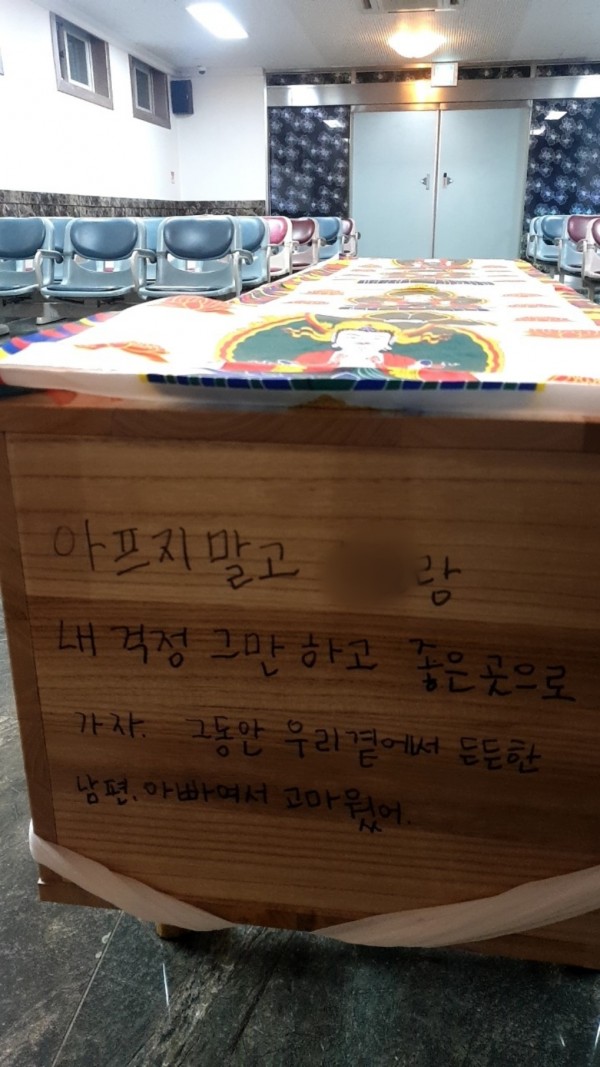 아프지말고 랑
내 걱정 그만 하고 좋은곳으로
가자. 그동안 우리곁에서 든든한
남편.아빠여서 고마웠어.